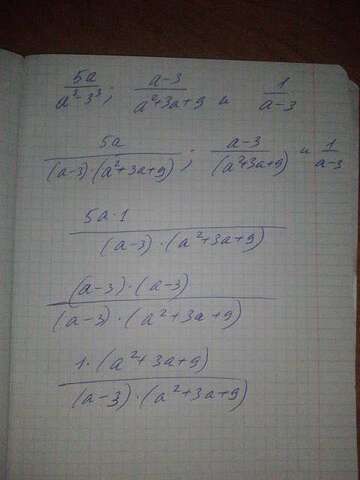 5a / (a³-3³); (a-3) / (a²+3a+9) и 1 / (a-3)
5a / ((a-3)·(a²+3a+9)); (a-3) / (a²+3a+9) и 1 / (a-3)
5a·1 / ((a-3)·(a²+3a+9))
(a-3)·(a-3) / ((a-3)·(a²+3a+9))
1·(a²+3a+9) / ((a-3)·(a²+3a+9))